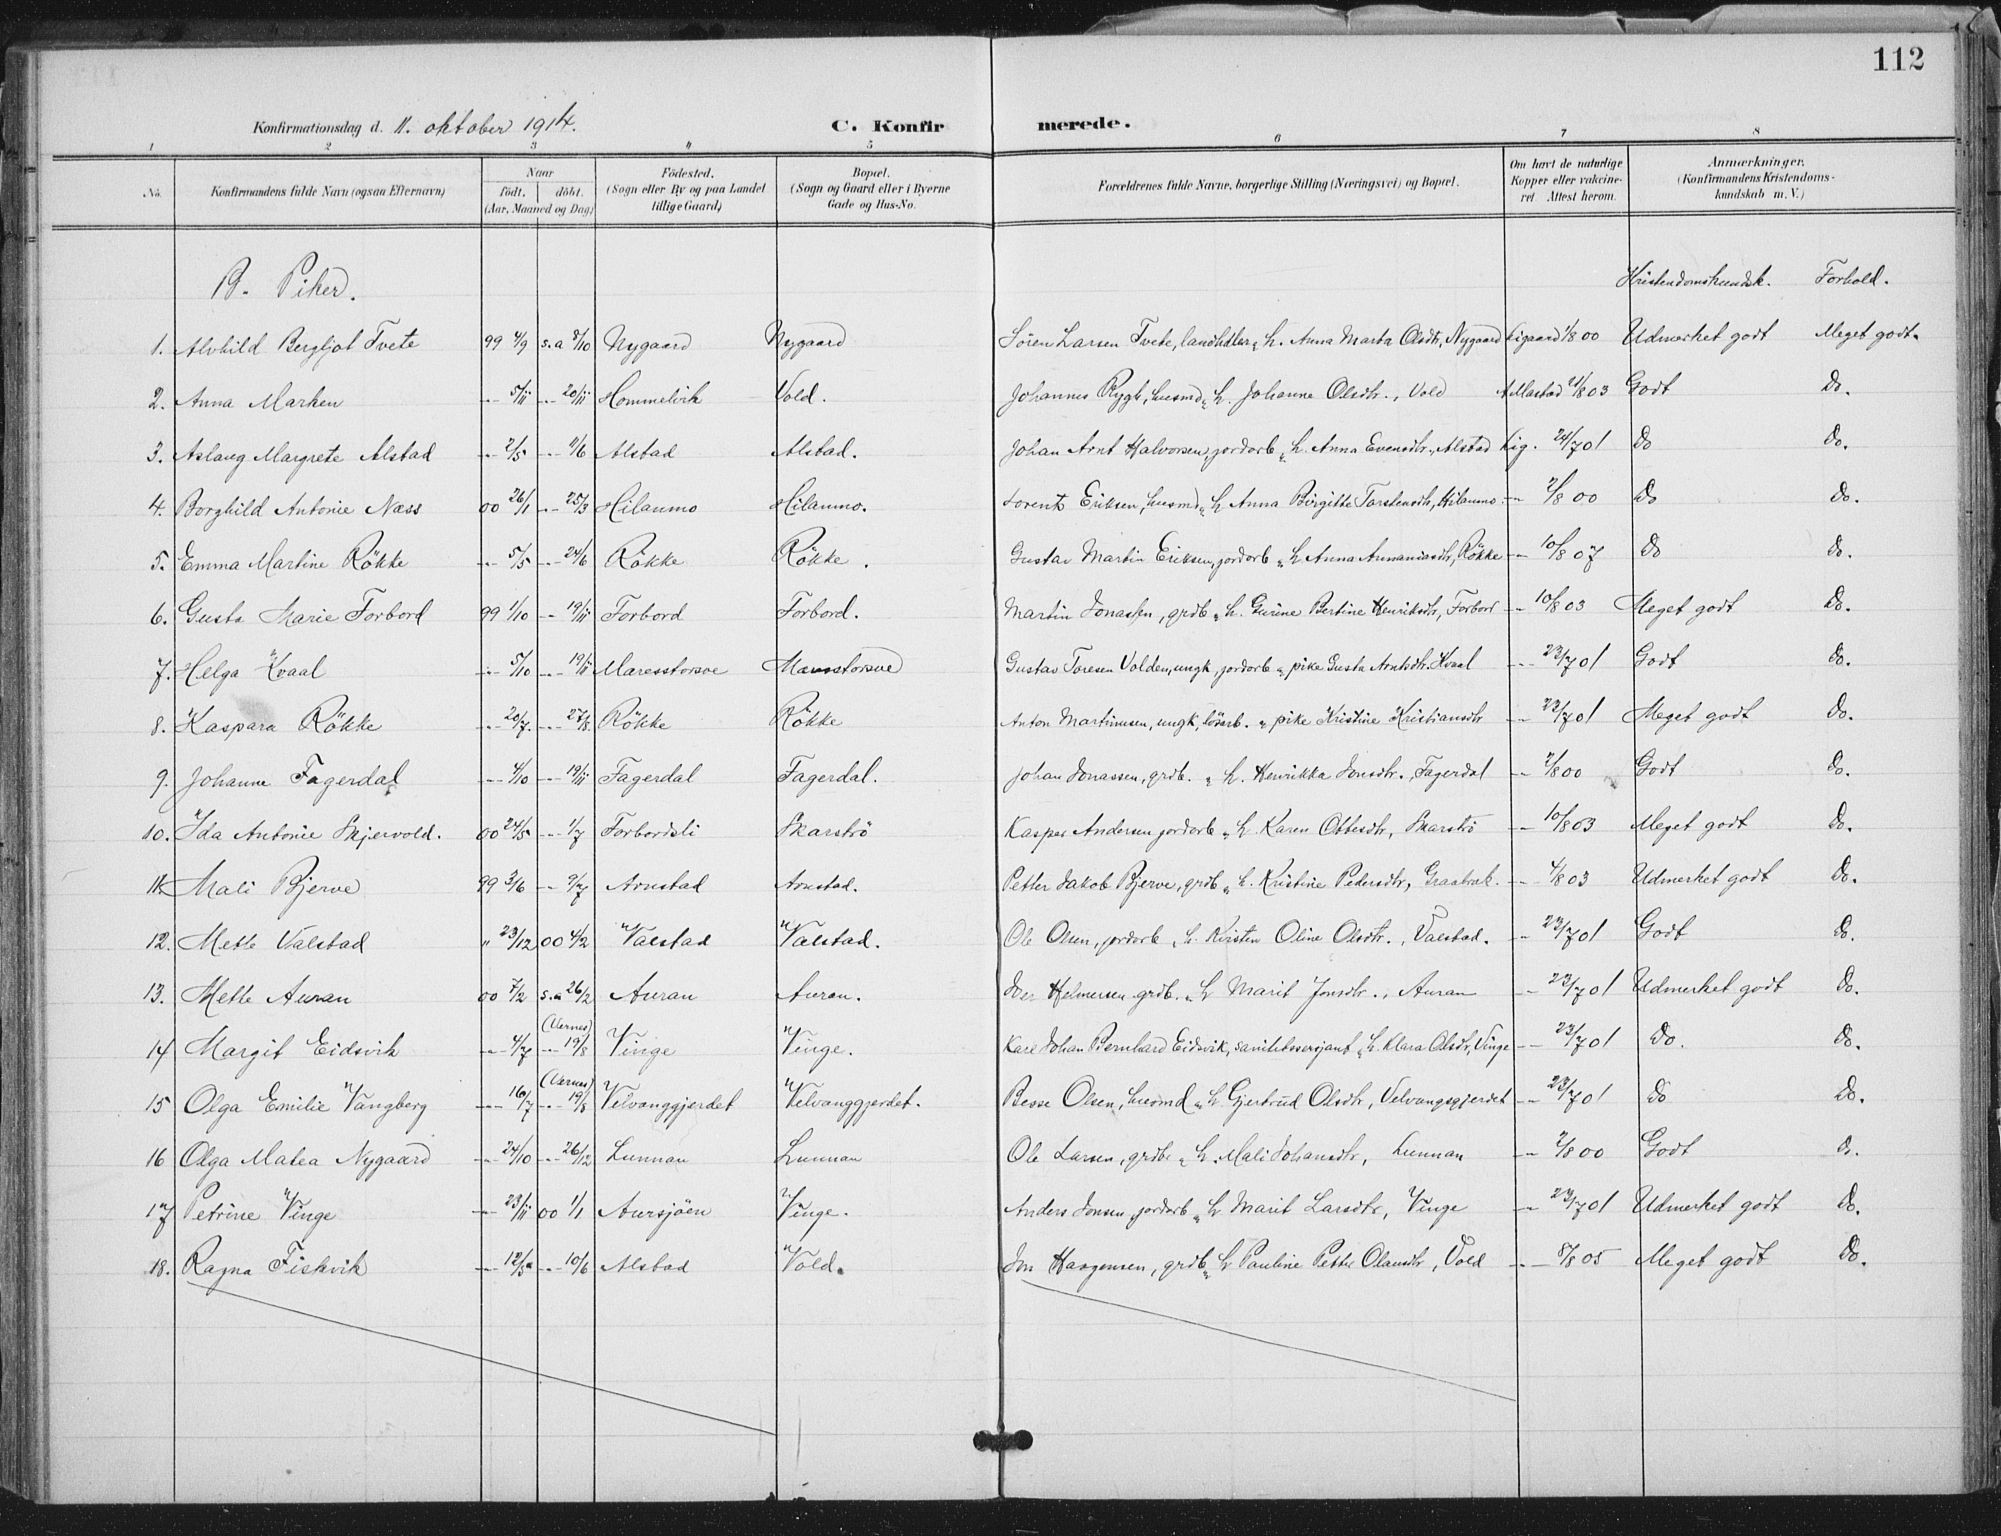 112
Konfirmationsdag d. 11. oktober 1914. C. Konfir merede.
1 2 3 4 5 6 7 8
No. Konfirmandens fulde Navn (ogsaa Efternavn) Naar födt. döbt. (Aar, Maaned og Dag) Födested. (Sogn eller By og paa Landet tillige Gaard) Bopæl. (Sogn og Gaard eller i Byerne Gade og Hus-No. Forældrenes fulde Navne, borgerlige Stilling (Næringsvei) og Bopæl. Om havt de naturlige Kopper eller vakcineret. Attest herom. Anmærkninger. (Konfirmandens Kristendomskundskab m. V.)
B. Piker. Kristendomskundsk. Forhold.
1. Alvhild Bergljot Tvete 99 4/9 s.a 8/10 Nygaard Nygaard Sören Larsen Tvete, landhdler & h. Anna Marta Olsdtr, Nygaard Ligaard 1/8 00 Udmerket godt Meget godt.
2. Anna Marken -- 5/11 -- 20/11 Hommelvik Vold. Johannes Rygh, husmd & h. Johanne Olsdtr., Vold 21/8 03 Godt Do.
3. Aslaug Margrete Alstad -- 2/5 -- 4/6 Alstad Alstad. Johan Arnt Halvorsen, jordarb & h. Anna Evensdtr., Alstad Lig. 24/7 01 Do Do.
4. Borghild Antonie Næss 00 26/1 -- 25/3 Hilanmo Hilanmo. Lorents Eriksen, husmd & h Anna Birgitte Torstensdtr, Hilanmo -- 2/8 00 Do Do.
5. Emma Martine Rökke -- 5/5 -- 24/6 Rökke Rökke. Gustav Martin Eriksen, jordarb & h Anna Annaniasdtr, Rökke -- 10/8 07 Do Do.
6. Gusta Marie Forbord 99 1/10 -- 19/11 Forbord Forbord. Martin Jonassen, grdb & h. Gurine Bertine Henriksdtr, Forbord -- 10/8 03 Meget godt Do.
7. Helga Kvaal -- 5/10 -- 19/11 Maresstorsve Gustav Toresen Volden, ungk, jordarb & pike Gusta Arntsdtr. Kvaal -- 23/7 01 Godt Do.
8. Kaspara Rökke -- 20/7. -- 27/8. Rökke Rökke Anton Martinusen, ungk, & pike Kristine Kristiansdtr -- 23/7 01 Meget godt Do.
9. Johanne Fagerdal -- 4/10 -- 19/11 Fagerdal Fagerdal. Johan Jonassen, grdb. & h. Henrikka Jonsdtr., Fagerdal -- 2/8 00 Godt Do.
10. Ida Antonie Skjervold. 00 24/5 -- 1/7 Forbordsli Skarströ Kasper Andersen jordarb & h. Karen Ottesdtr, Skarströ -- 10/8 03 Meget godt Do.
11. Mali Bjerve 99 3/6 -- 9/7 Arnstad Arnstad. Petter Jakob Bjerve, grdb & h. Kristine Pedersdtr, Graabrak. -- 4/8 03 Udmerket godt Do.
12. Mette Valstad " 23/12 00 4/2 Valstad Valstad. Ole Olsen, jordarb & h. Kirsten Oline Olsdtr., Valstad. -- 23/7 01 Godt Do.
13. Mette Auran 00 7/2 s.a 26/2 Auran Auran. Iver Helmersen grdb. & h Marit Jonsdtr., Auran -- 23/7 01 Udmerket godt Do.
14 Margit Eidsvik -- 4/7 -- (Værnes) 19/8 Vinge Vinge. Karl Johan Bernhard Eidsvik, sanitetssersjant & h. Klara Olsdtr, Vinge -- 23/7 01 Do. Do.
15 Olga Emilie Vangberg -- 16/7 -- (Værnes) 19/8 Velvanggjerdet Velvanggjerdet. Besse Olsen, husmd & h. Gjertrud Olsdtr, Velvangsgjerdet -- 23/7 01 Do Do.
16 Olga Matea Nygaard -- 24/10 -- 26/12 Lunnan Lunnan Ole Larsen, grdbr & h. Mali Johansdtr, Lunnan -- 2/8 00 Godt Do.
17 Petrine Vinge -- 23/11 00 1/1 Aursjöen Vinge. Anders Jonsen, jordarb & h Marit Larsdtr, Vinge -- 23/7 01 Udmerket godt Do.
18. Ragna Fiskvik -- 12/5 -- 10/6 Alstad Vold. Jon Haagensen, grdb & h Pauline Petra Olausdtr, Vold -- 8/8 05 Meget godt Do.